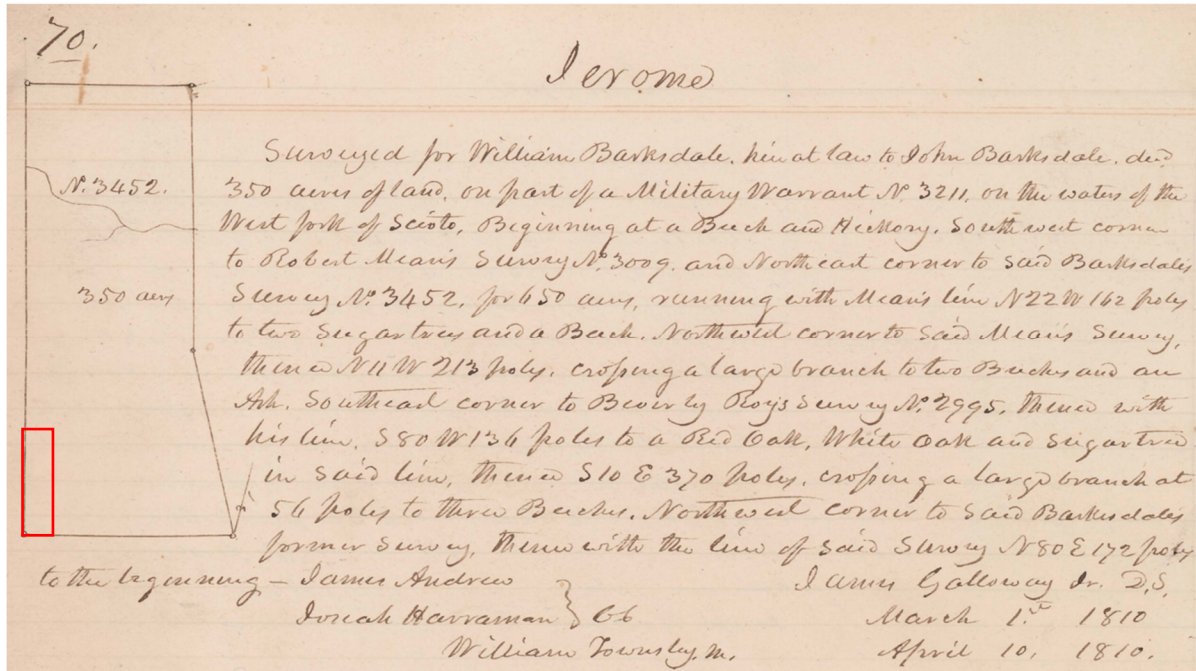 70.
Jerome
Surveyed for William Barksdale. heir at law to John Barksdale. decd
N. 3452.
350 acres of land, on part of a Military Warrant No. 3211, on the waters of the
West fork of Scioto, Beginning at a Beech and Hickory. Southwest corner
to Robert Means Survey No. 3009. and Northeast corner to said Barksdales
350 acrs
Survey No. 3452. for 650 acres, running with Means line N22W 162 poles
to two Sugartrees and a Beech. Northwest corner to said Means Survey,
thence N11W 213 poles. crossing a large branch to two Beeches and an
Ash. Southeast corner to Beverly Roys Survey No. 2995. thence with
his line. S80W 136 poles to a Red Oak, White Oak and Sugartree
in said line, thence S10E 370 poles. crossing a large branch at
56 poles to three Beeches. Northwest corner to said Barksdales
former Survey, thence with the line of said Survey N80E 172 poles
to the beginning – James Andrew
Josiah Harraman } CC
William Townsley. M.
James Galloway Jr. D.S.
March 1st 1810
April 10, 1810.